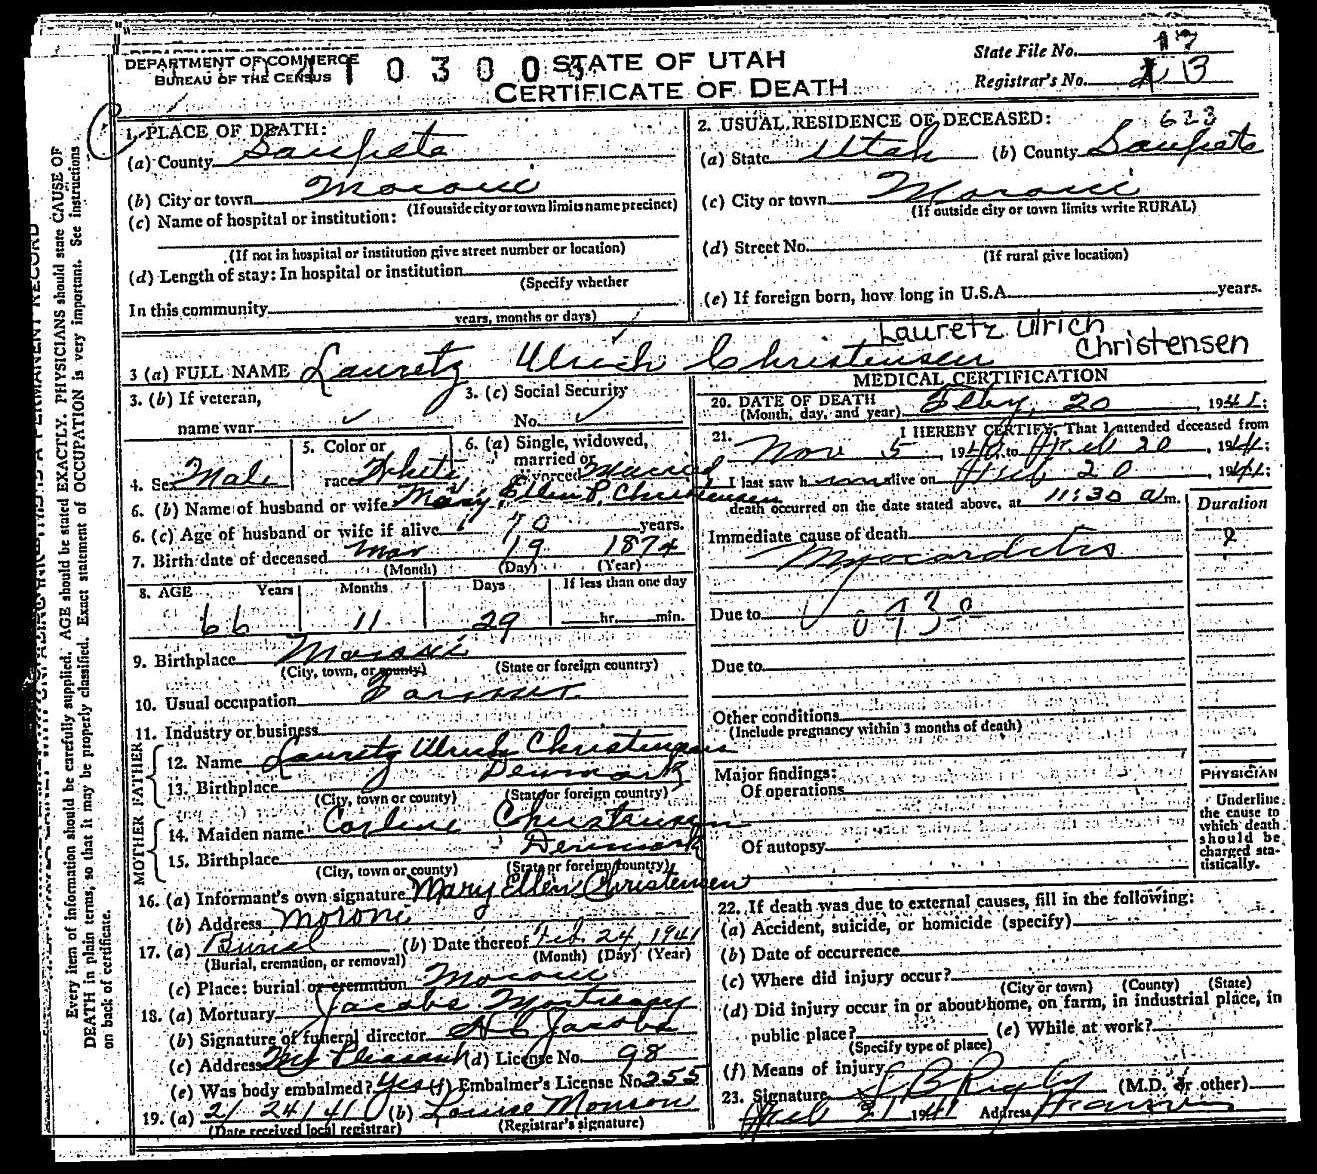 DEPARTMENT OF COMMERCE
BUREAU OF THE CENSUS
0 3 0 0
STATE OF UTAH
CERTIFICATE OF DEATH
State File No. 17
Registrar's No. 13
1. PLACE OF DEATH:
(a) County Sanpete
(b) City or town Moroni
(If outside city or town limits name precinct)
(c) Name of hospital or institution:
(If not in hospital or institution give street number or location)
(d) Length of stay: In hospital or institution
(Specify whether
In this community
years, months or days)
2. USUAL RESIDENCE OF DECEASED: 623
(a) State Utah (b) County Sanpete
(c) City or town Moroni
(If outside city or town limits write RURAL)
(d) Street No.
(If rural give location)
(e) If foreign born, how long in U.S.A. years.
Lauretz Ulrich
Christensen
3 (a) FULL NAME Lauretz Ulrich Christensen
3. (b) If veteran,
name war
3. (c) Social Security
No.
4. Sex Male
5. Color or
race White
6. (a) Single, widowed,
married or
divorced Married
6. (b) Name of husband or wife Mary Ellen P. Christensen
6. (c) Age of husband or wife if alive 70 years.
7. Birth date of deceased Mar 19 1874
(Month) (Day) (Year)
8. AGE Years Months Days If less than one day
66 11 29 hr. min.
9. Birthplace Moroni
(City, town, or county) (State or foreign country)
10. Usual occupation Farmer
11. Industry or business
FATHER
12. Name Lauretz Ulrich Christensen
13. Birthplace Denmark
(City, town or county) (State or foreign country)
MOTHER
14. Maiden name Christensen
15. Birthplace Denmark
(City, town or county) (State or foreign country)
16. (a) Informant's own signature Mary Ellen Christensen
(b) Address Moroni
17. (a) Burial (b) Date thereof Feb. 24, 1941
(Burial, cremation, or removal) (Month) (Day) (Year)
(c) Place: burial or cremation Moroni
18. (a) Mortuary Jacobs Mortuary
(b) Signature of funeral director Jacobs
(c) Address Mt Pleasant (d) License No. 98
(e) Was body embalmed? Yes (f) Embalmer's License No 255
19. (a) 2/24/41 (b) Louise Monson
(Date received local registrar) (Registrar's signature)
MEDICAL CERTIFICATION
20. DATE OF DEATH
(Month, day, and year) Feby. 20, 1941;
21. I HEREBY CERTIFY, That I attended deceased from
Nov 5, 1940, to Feb 20, 1941;
I last saw him alive on Feb 20, 1941;
death occurred on the date stated above, at 11:30 a m.
Duration
Immediate cause of death
Myocarditis
Due to 93
Due to
Other conditions
(Include pregnancy within 3 months of death)
Major findings:
Of operations
Of autopsy
PHYSICIAN
Underline
the cause to
which death
should be
charged sta-
tistically.
22. If death was due to external causes, fill in the following:
(a) Accident, suicide, or homicide (specify)
(b) Date of occurrence
(c) Where did injury occur?
(City or town) (County) (State)
(d) Did injury occur in or about home, on farm, in industrial place, in
public place? (e) While at work?
(Specify type of place)
(f) Means of injury
23. Signature Rigby (M.D. or other)
Feb 21 1941 Address
Every item of information should be carefully supplied. AGE should be stated EXACTLY. PHYSICIANS should state CAUSE OF
DEATH in plain terms, so that it may be properly classified. Exact statement of OCCUPATION is very important. See instructions
on back of certificate.